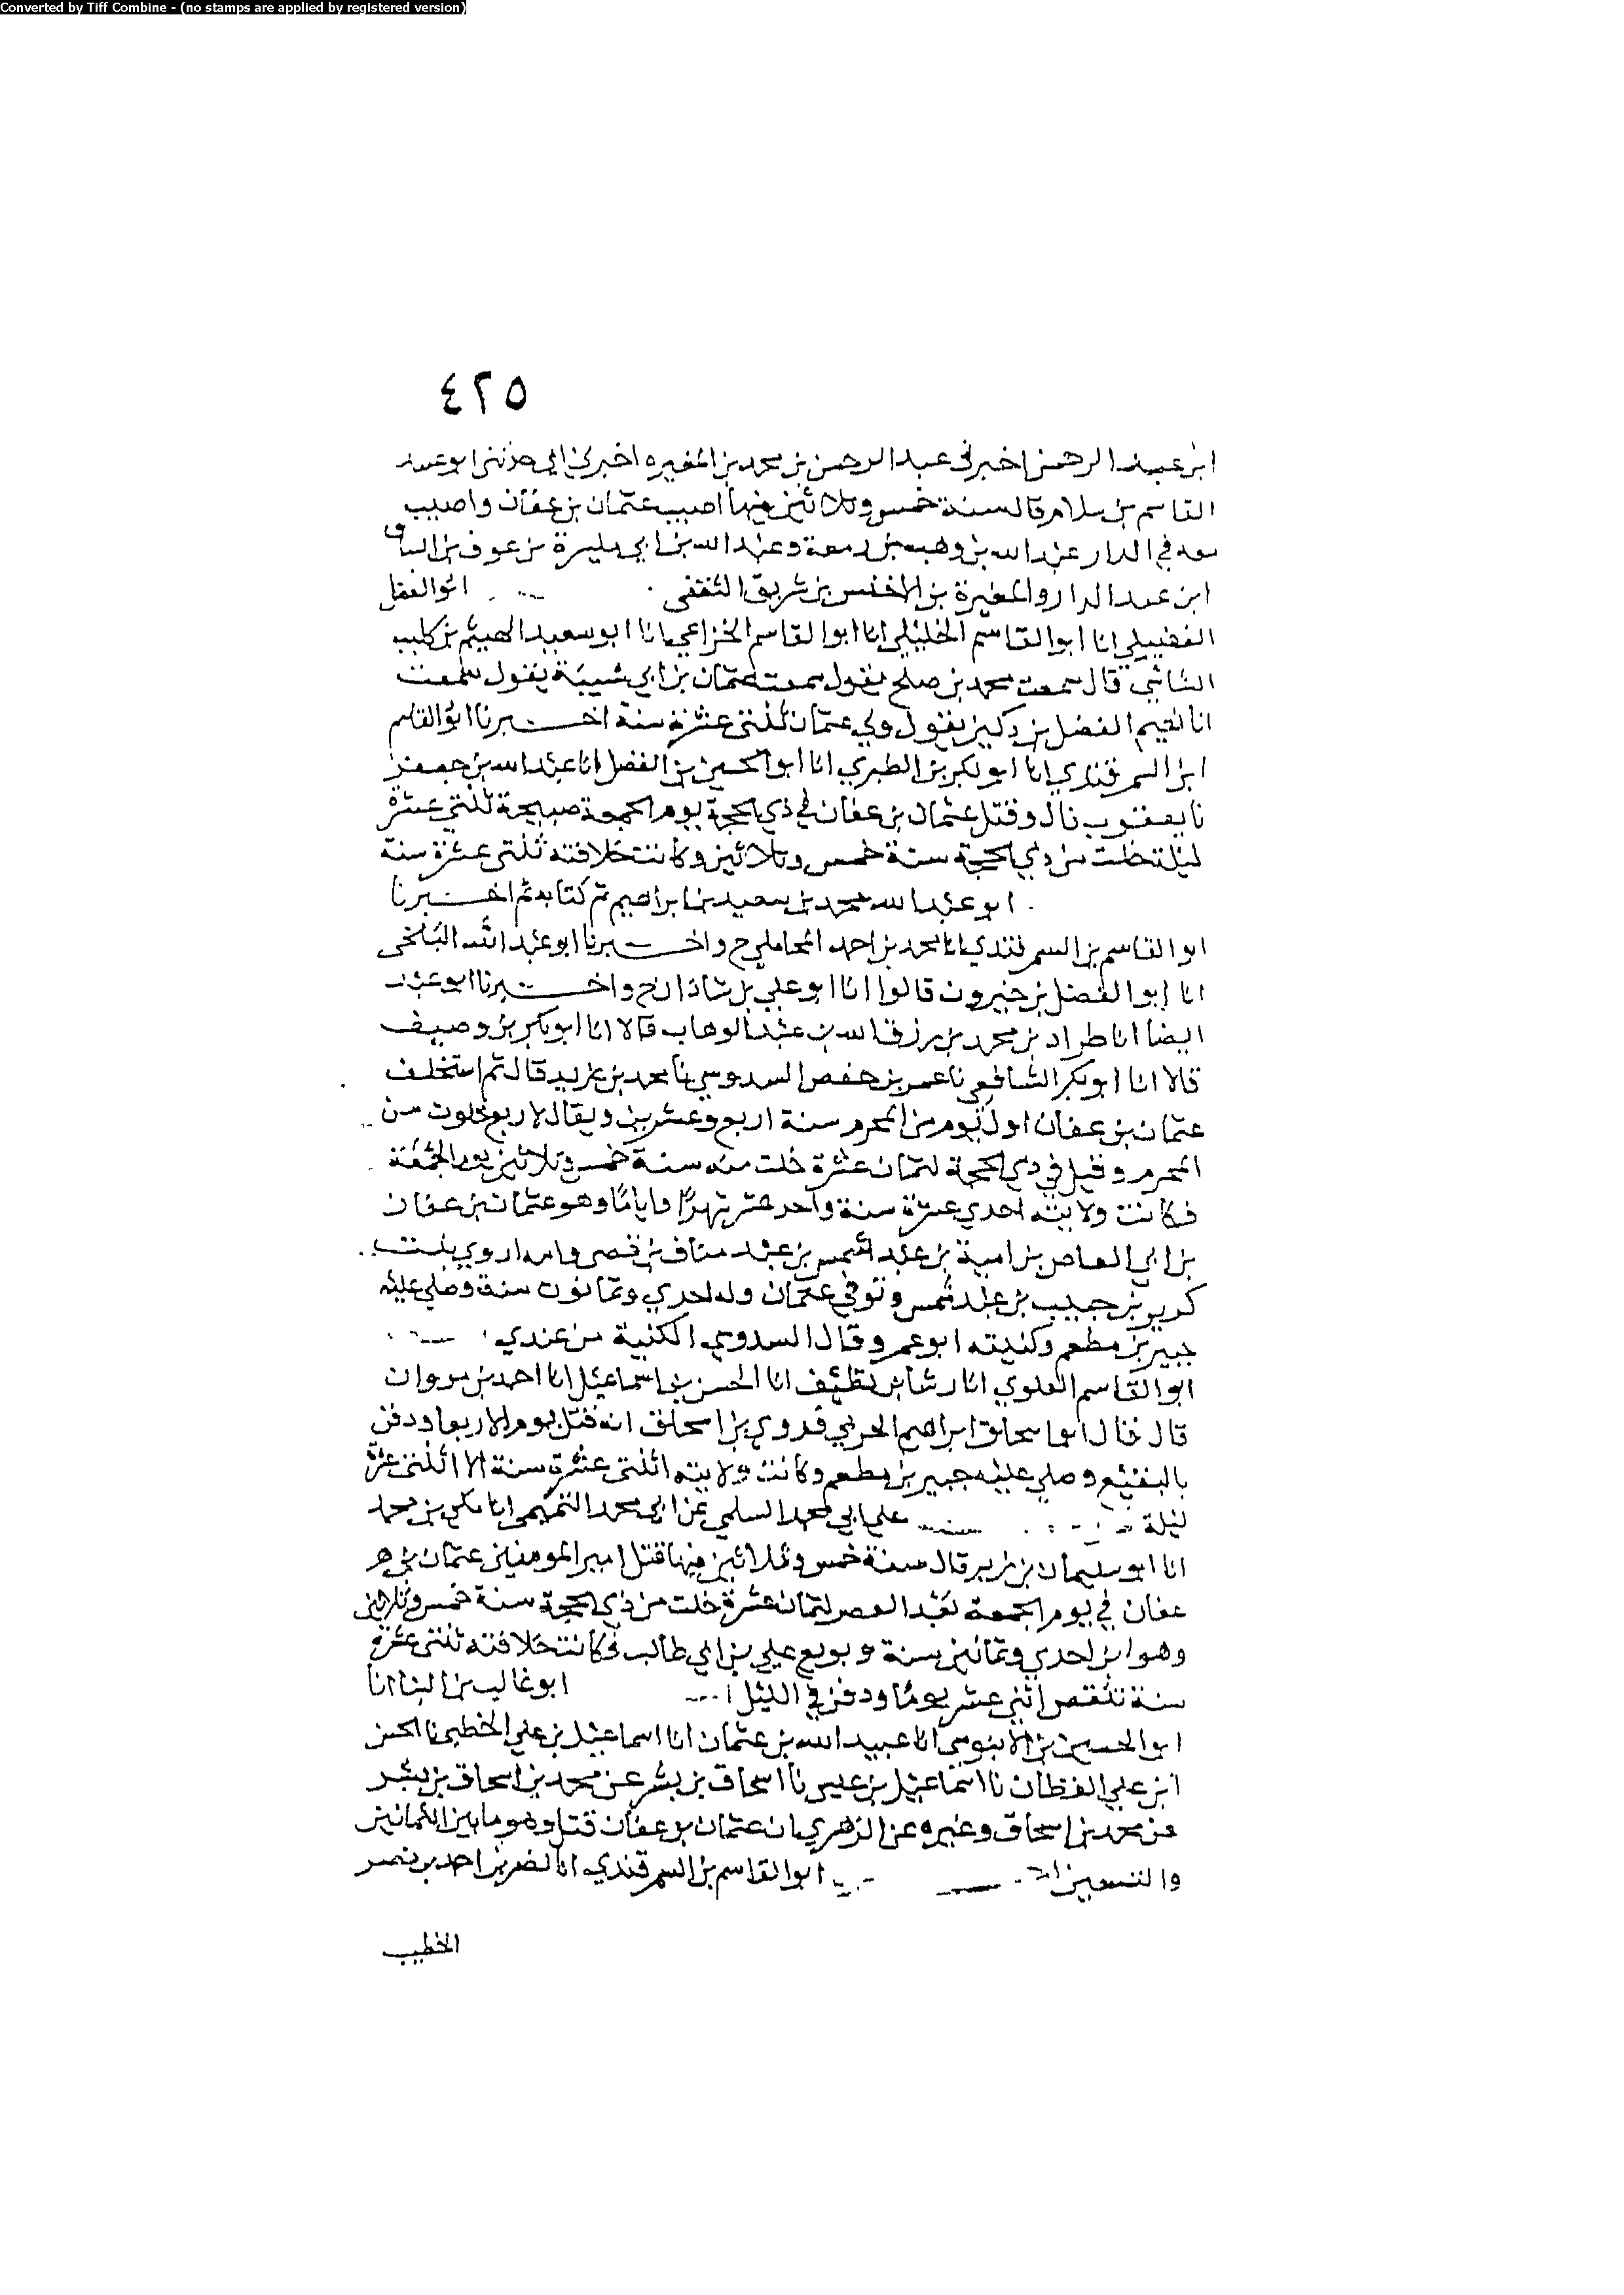 Converted by Tiff Combine - (no stamps are applied by registered version)
٤٢٥
ابن عبيد الرحمن اخبرني عبد الرحمن بن محمد بن المغيرة اخبرني ابي حدثني ابو عبيد
القاسم بن سلام قال سنة خمس وثلاثين فيها اصيب عثمان بن عفان واصيب
معه في الدار عبد الله بن وهب بن زمعة وعبد الله بن ابي مليرة بن عوف بن السباق
ابن عبد الدار والمغيرة بن الاخنس بن شريق الثقفي ابو الفضل
الفضيلي انا ابو القاسم الخليلي انا ابو القاسم الخزاعي انا ابو سعيد الهيثم بن كليب
الشاشي قال سمعت محمد بن صلح يقول سمعت عثمان بن ابي شيبة يقول سمعت
ابا نعيم الفضل بن دكين يقول ولي عثمان ثلثتي عشرة سنة اخبرنا ابو القاسم
ابن السمرقندي انا ابو بكر بن الطبري انا ابو الحسين بن الفضل انا عبد الله بن جعفر
نا يعقوب قال وقتل عثمان بن عفان في ذي الحجة يوم الجمعة صبيحة ثلتي عشرة
ليلة خلت من ذي الحجة سنة خمس وثلاثين وكانت خلافته ثلتي عشرة سنة
ابو عبد الله محمد بن سعيد بن ابراهيم ثم كتابه ثم اخبرنا
ابو القاسم بن السمرقندي انا محمد بن احمد المحاملي ح واخبرنا ابو عبد الله البلخي
انا ابو الفضل بن خيرون قالوا انا ابو علي بن شاذان ح واخبرنا ابو عبد
ايضا انا طراد بن محمد بن رزق الله بن عبد الوهاب قالا انا ابو بكر بن وصيف
قالا انا ابو بكر الشافعي نا عمر بن حفص السدوسي نا محمد بن يزيد قال ثم استخلف
عثمان بن عفان اول يوم من المحرم سنة اربع وعشرين ويقال لاربع خلون من
المحرم وقيل في ذي الحجة لثمان عشرة خلت منه سنة خمس وثلاثين يوم الجمعة
فكانت ولايته احدي عشرة سنة واحد عشر شهرًا وايامًا وهو عثمان بن عفان
بن ابي العاص بن امية بن عبد شمس بن عبد مناف بن قصي وامه اروي بنت
كريز بن حبيب بن عبد شمس وتوفي عثمان وله احدي وثمانون سنة وصلي عليه
جبير بن مطعم وكنيته ابو عمرو قال السدوسي الكنية من عندي
ابو القاسم العلوي انا رشا بن نظيف انا الحسن بن اسماعيل انا احمد بن مروان
قال قال ابو اسحاق ابراهيم الحربي فروي بن اسحاق انه قتل يوم الاربعا ودفن
بالبقيع وصلي عليه جبير بن مطعم وكانت ولايته اثلتي عشرة سنة الا اثلتي عشرة
ليلة علي ابي محمد السلمي عن ابي محمد التميمي انا مكي بن محمد
انا ابو سليمان بن زبر قال سنة خمس وثلاثين فيها قتل امير المومنين عثمان بن
عفان في يوم الجمعة بعد العصر لثمان عشرة خلت من ذي الحجة سنة خمس وثلاثين
وهو ابن احدي وثمانين سنة وبويع علي بن ابي طالب فكانت خلافته ثنتي عشرة
سنة تنقص اثني عشر يومًا ودفن في الليل ابو غالب بن البنا انا
ابو الحسين بن الابنوسي انا عبيد الله بن عثمان انا اسماعيل بن علي الخطبي نا الحسن
ابن علي القطان نا اسماعيل بن عيسى نا اسحاق بن بشر عن محمد بن اسحاق بن بشر
عن محمد بن اسحاق وغيره عن الزهري ان عثمان بن عفان قتل وهو ما بين الثمانين
والتسعين ابو القاسم بن السمرقندي انا نصر بن احمد بن نصر
الخطيب